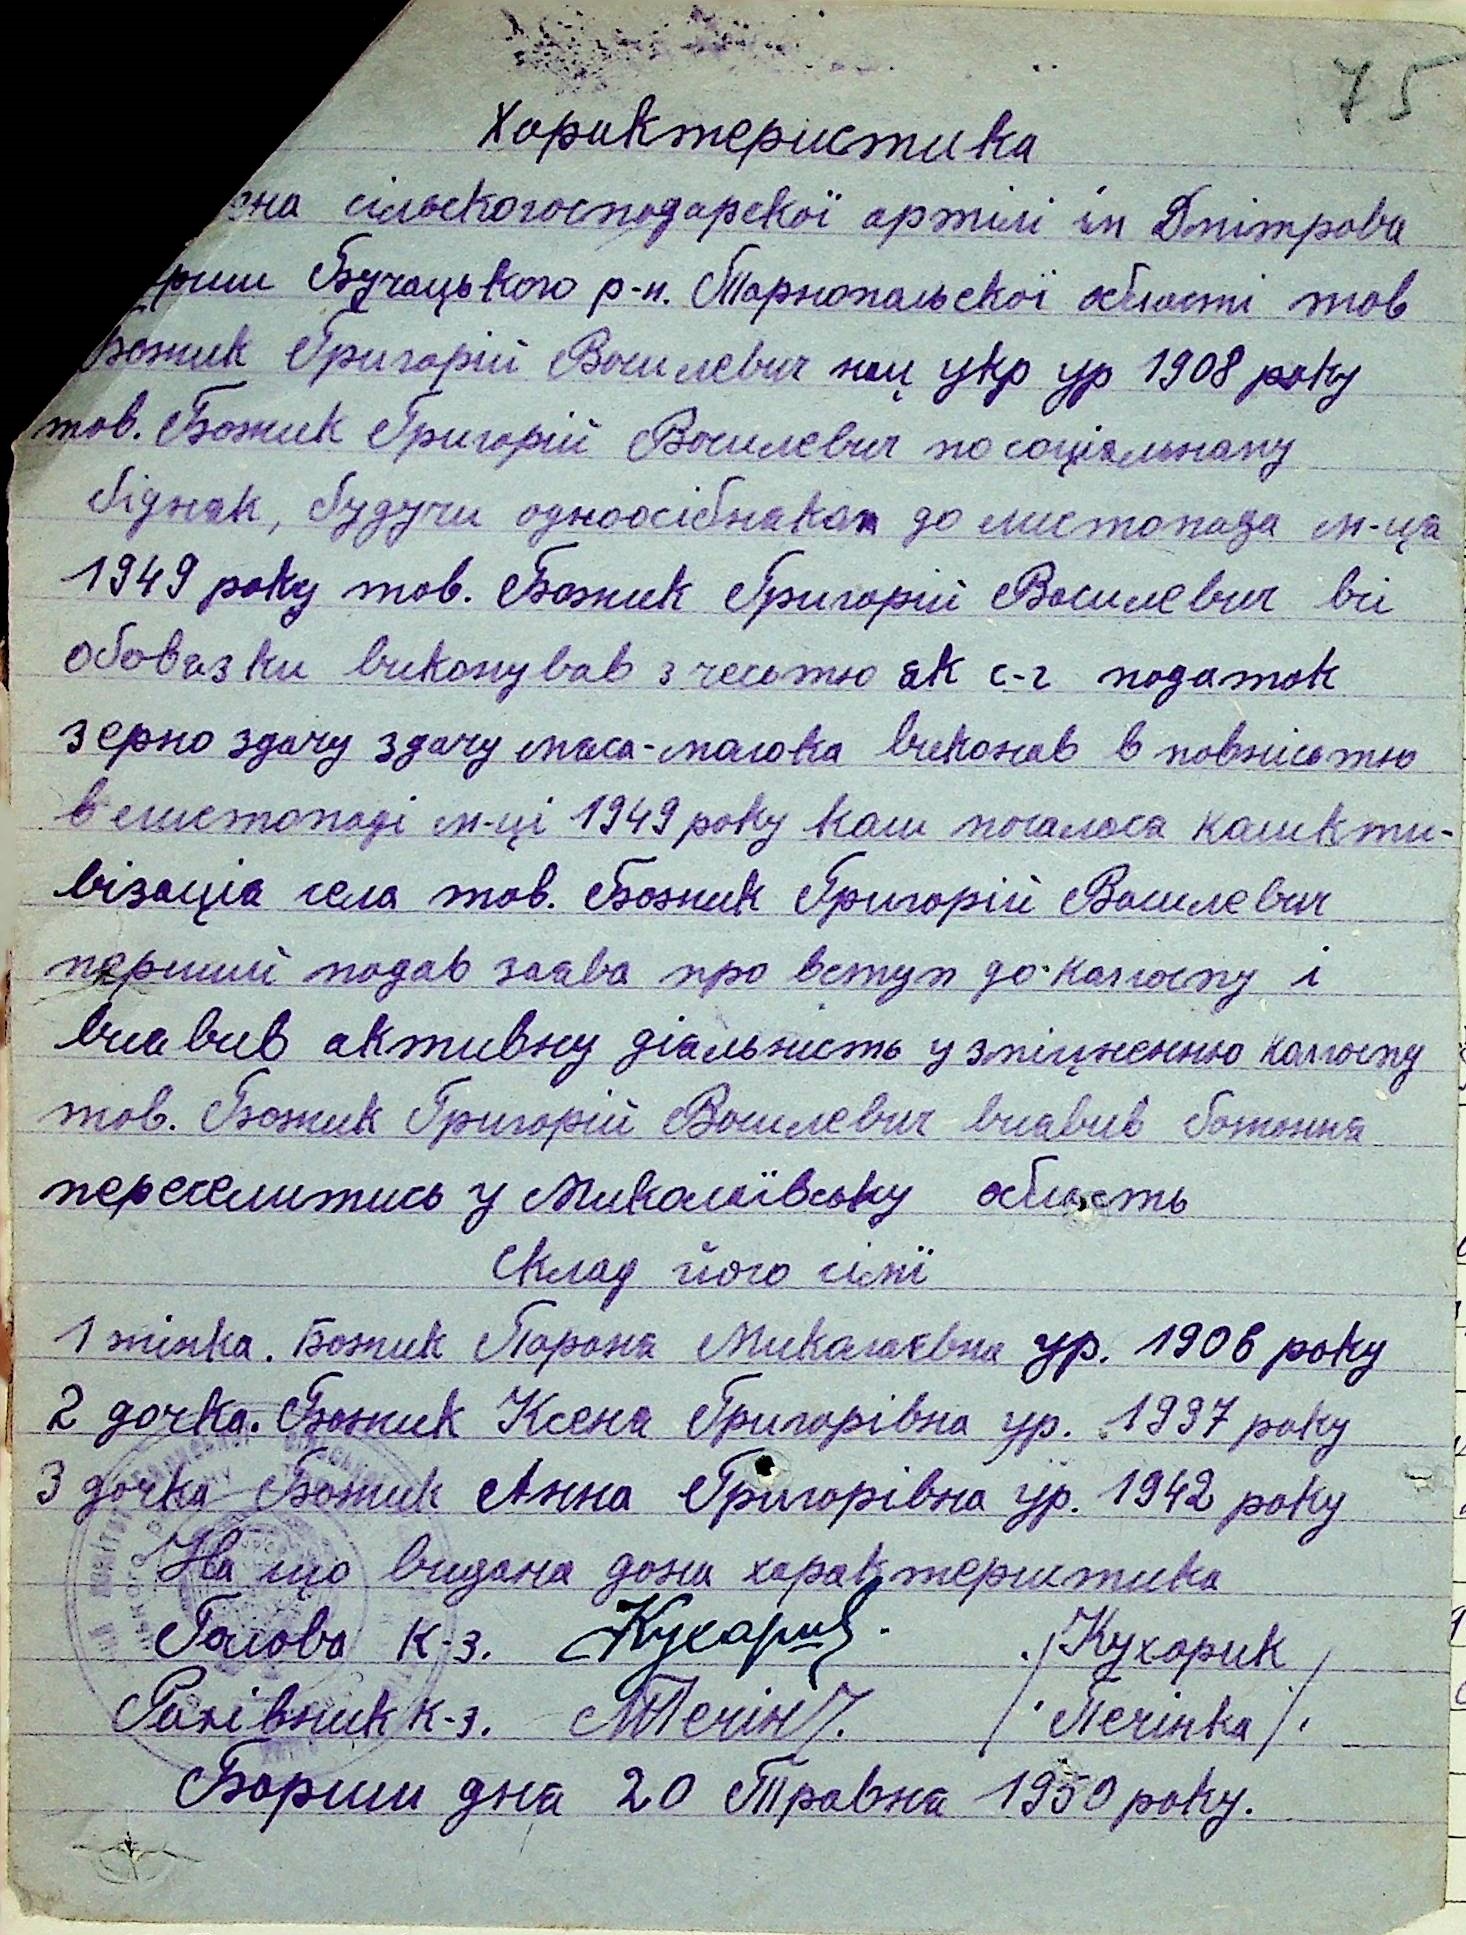 75
Характеристика
єна сільскогосподарскої артілі ім Дмітрова
риш Бучацького р-н. Тарнопальскої области тов
Божик Григорій Василевич нац укр ур 1908 року
тов. Божик Григорій Василевич по соціальнаму
бідняк, будучи одноосібнякам до листопада м-ца
1949 року тов. Божик Григорій Василевич всі
обовязки виконував з чесьтю як с-г податок
зерно здачу здачу мяса-малока виконав в повнісьтю
в листопаді м-ці 1949 року каш почалася калікти-
візація села тов. Божик Григорій Василевич
перший подав заява про вступ до калгоспу і
виавив активну діальність у зміцненню калгоспу
тов. Божик Григорій Василевич виавив бажання
переселитись у Миколаївську область
Склад його сімї
1 жінка. Божик Парона Микалаєвна ур. 1906 року
2 дочка. Божик Ксеня Григорівна ур. 1937 року
3 дочка Божик Анна Григорівна ур. 1942 року
На що видана дана характеристика
Голова к-з. Кухарик /Кухарик/
Рахівник к-з. МПечін /Печінка/.
Бариш дня 20 Травня 1950 року.